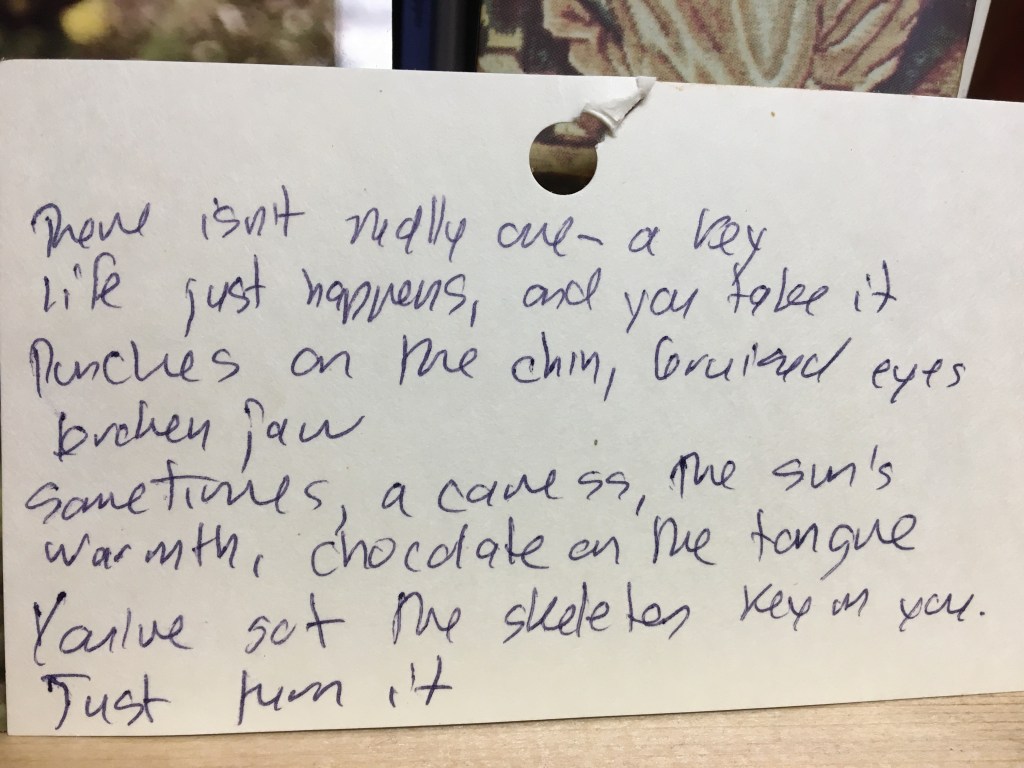 There isn't really one - a key
Life just happens, and you take it
Punches on the chin, bruised eyes
broken jaw
sometimes, a caress, the sun's
warmth, chocolate on the tongue
You've got the skeleton key in you.
Just turn it